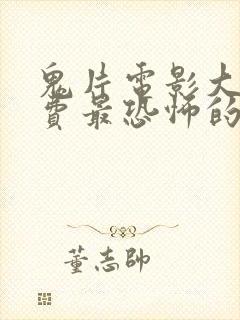 鬼片电影大
费最恐怖的
董志帅